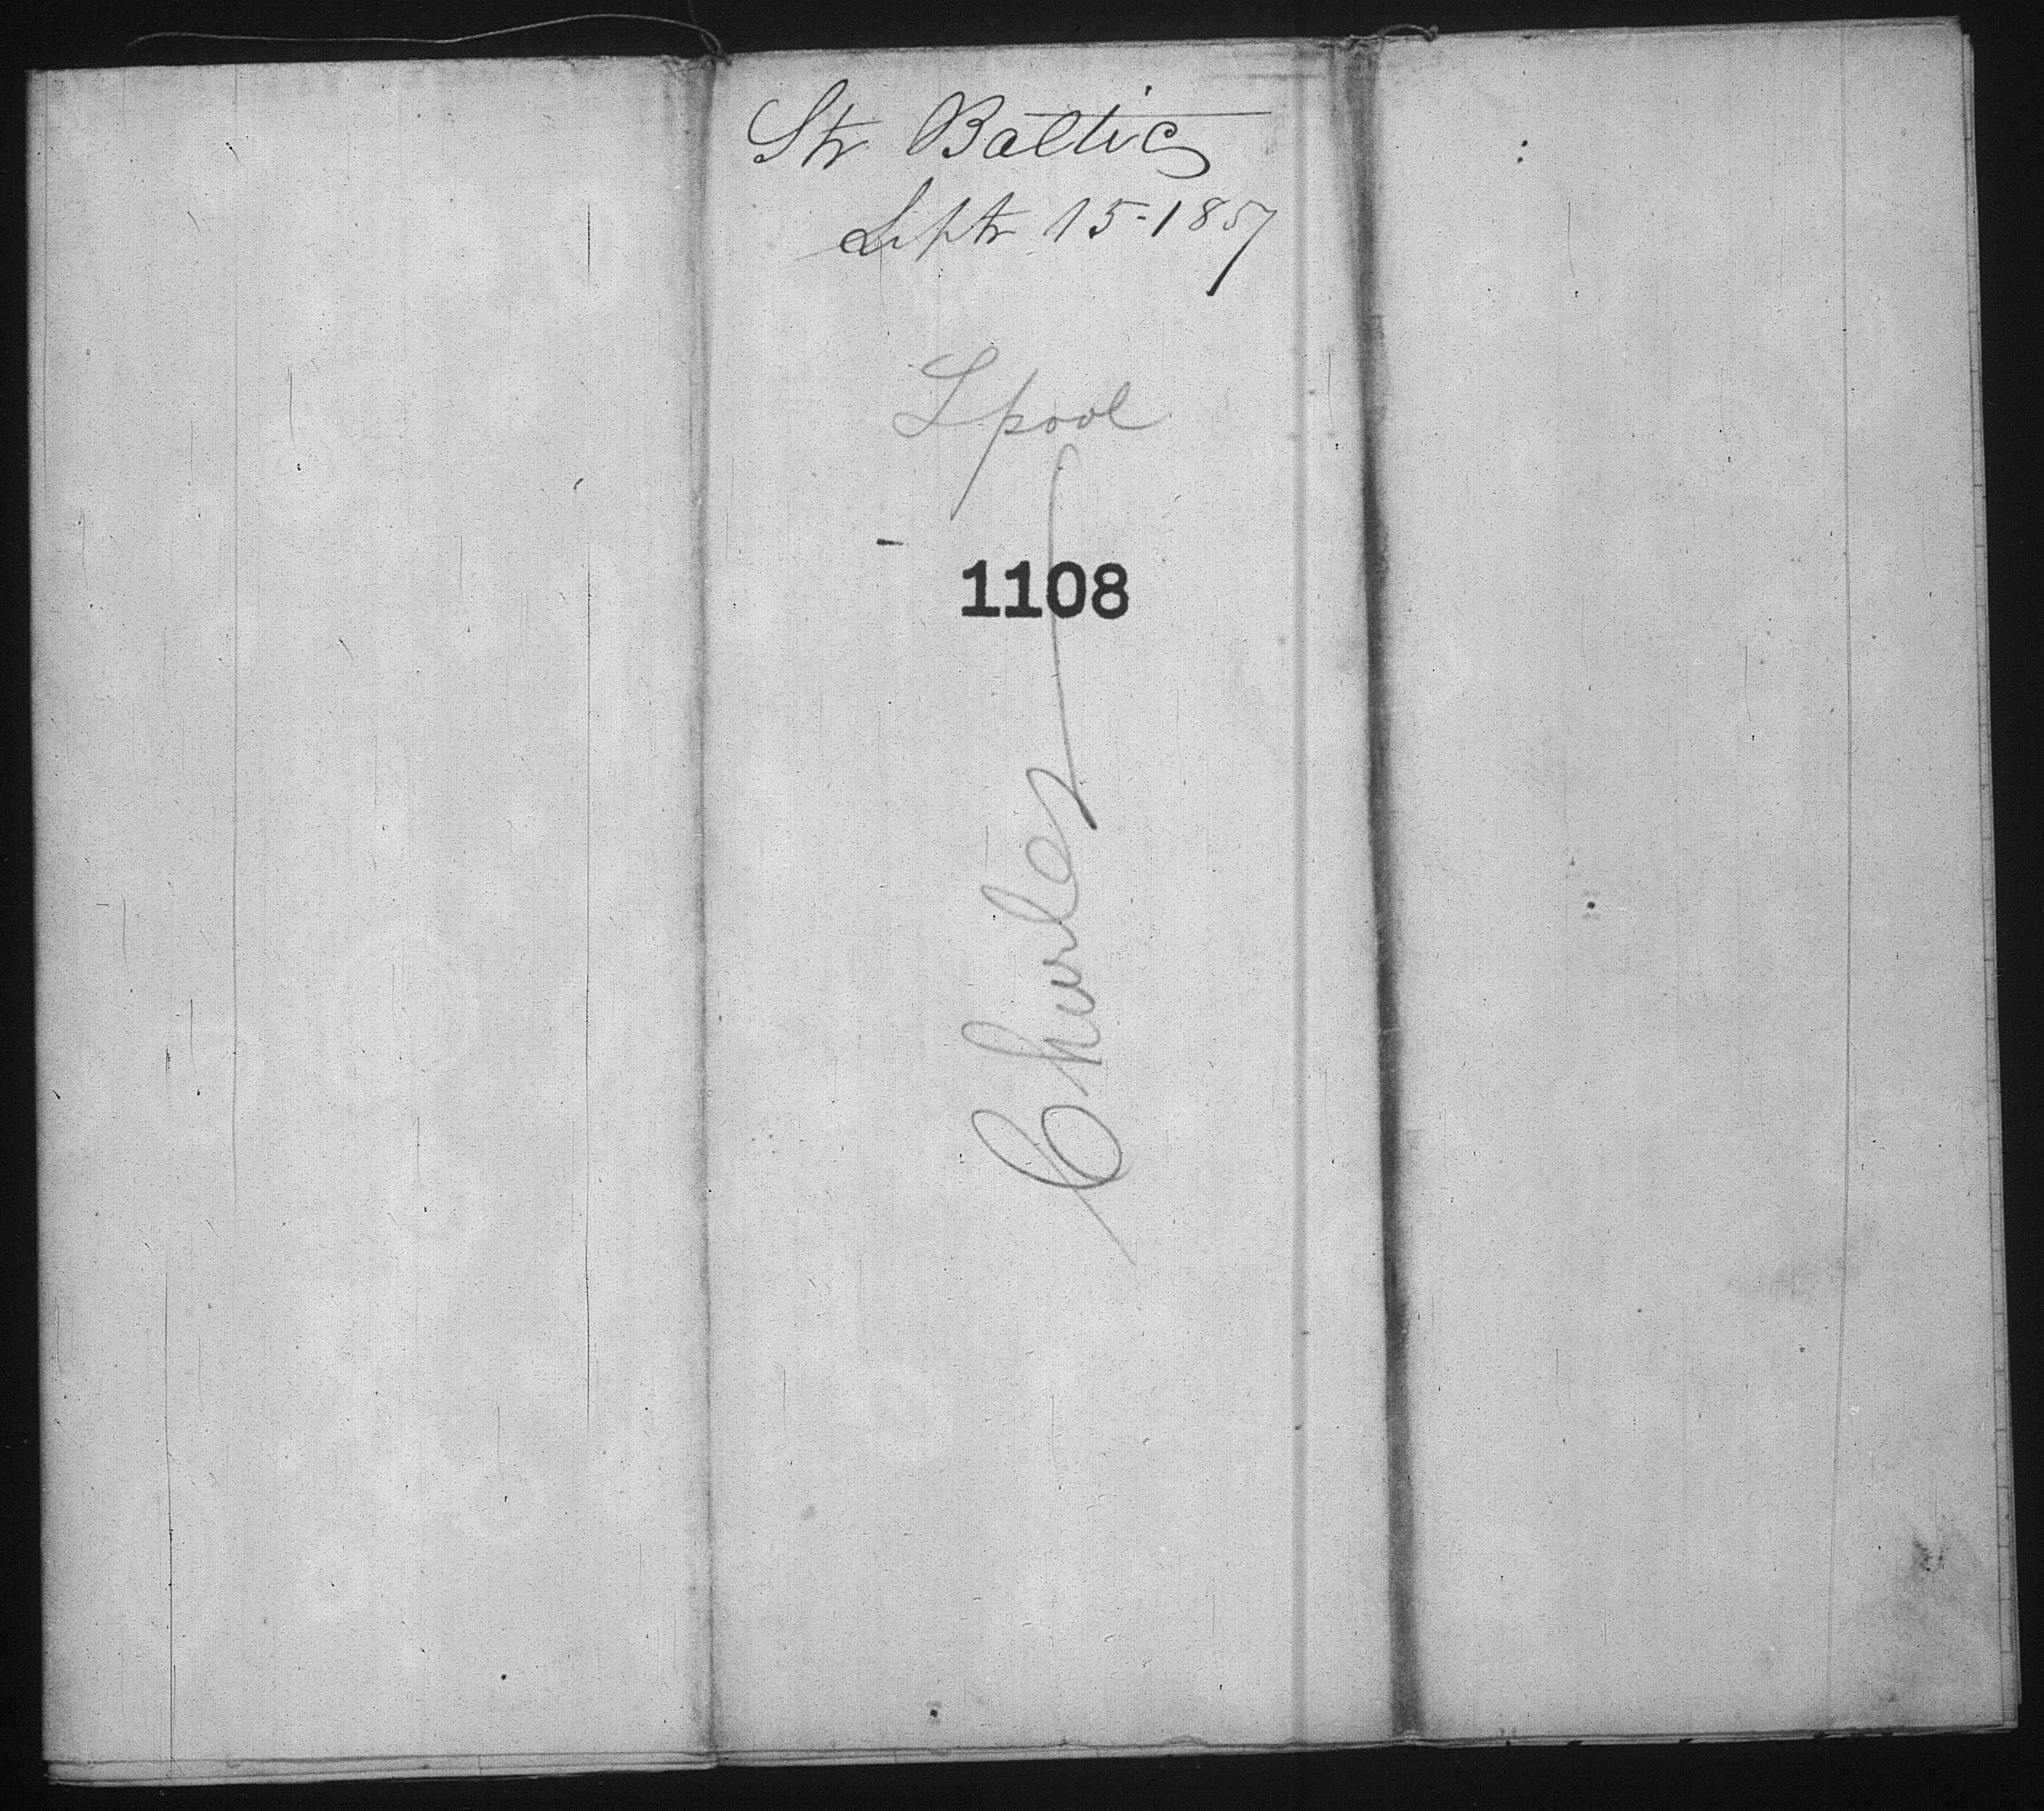 Str Baltic
Sept 15-1857
Lpool
1108
Charles